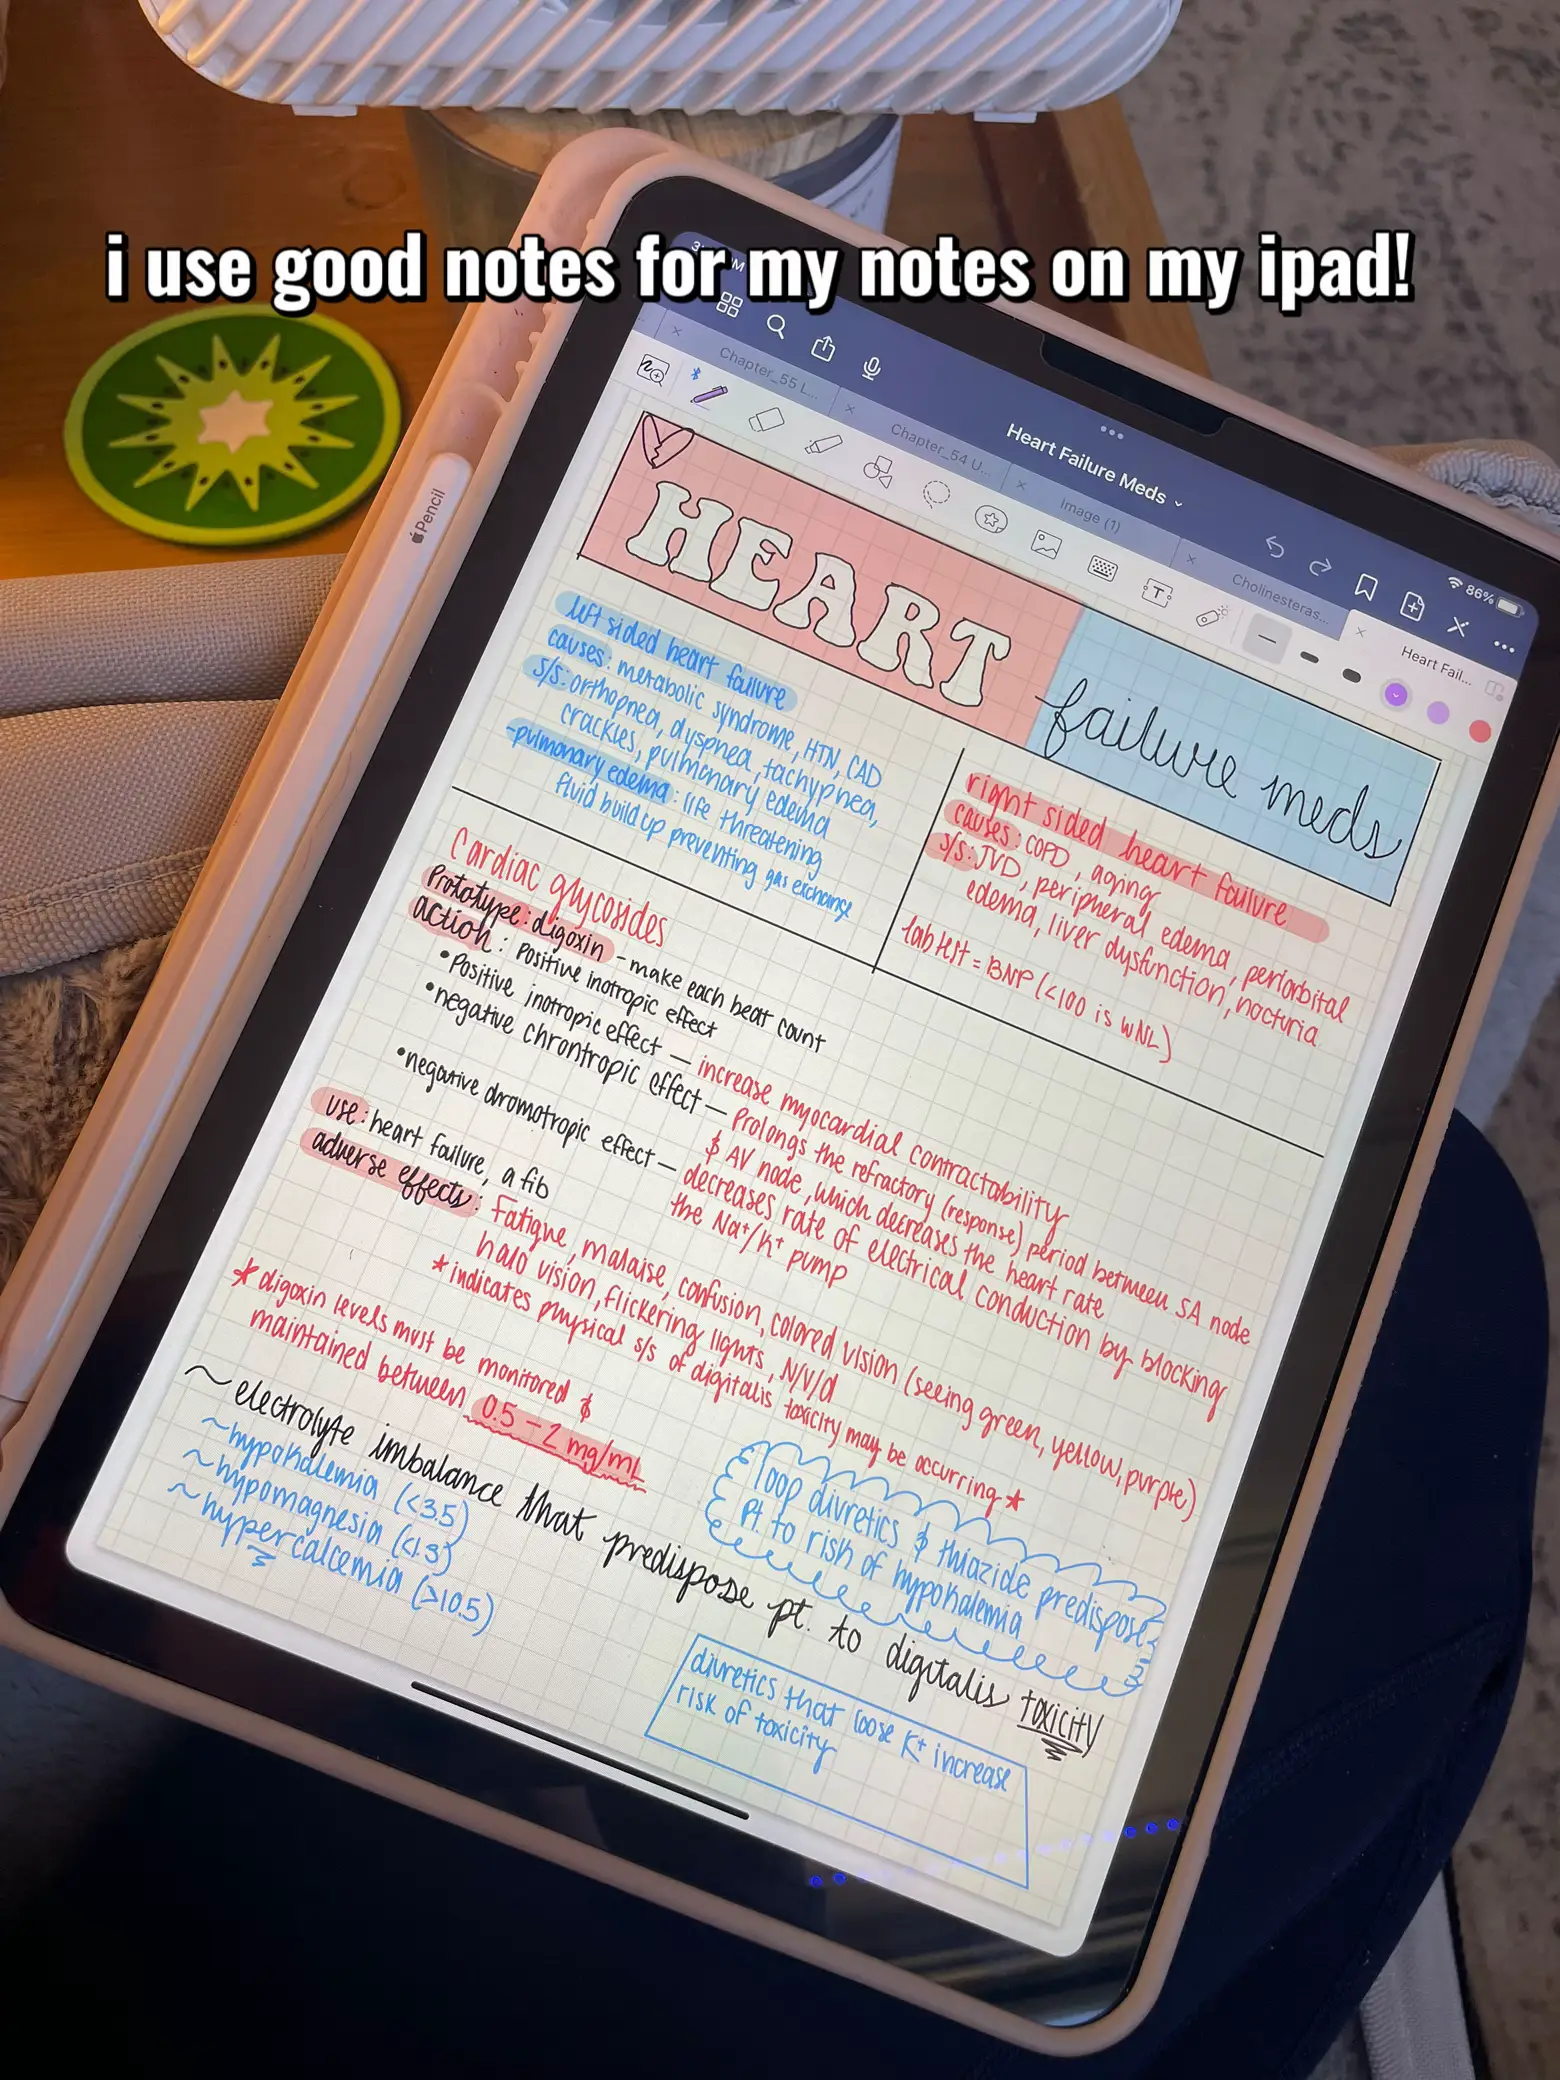 i use good notes for my notes on my ipad!
Pencil
Heart Failure Meds
86%
Chapter_55 L...
Chapter_54 U...
Image (1)
Cholinesteras...
Heart Fail...
HEART
failure meds
left sided heart failure
causes: metabolic syndrome, HTN, CAD
s/s: orthopnea, dyspnea, tachypnea,
crackles, pulmonary edema
-pulmonary edema: life threatening
fluid build up preventing gas exchange
right sided heart failure
causes: COPD, aging
s/s: JVD, peripheral edema, periorbital
edema, liver dysfunction, nocturia
lab test = BNP (<100 is WNL)
Cardiac glycosides
Prototype: digoxin - make each beat count
action: positive inotropic effect
•Positive inotropic effect — increase myocardial contractability
•negative chrontropic effect — Prolongs the refractory (response) period between SA node
& AV node, which decreases the heart rate
•negative dromotropic effect — decreases rate of electrical conduction by blocking
the Na+/K+ pump
use: heart failure, a fib
adverse effects: Fatigue, malaise, confusion, colored vision (seeing green, yellow, purple)
halo vision, flickering lights, N/V/d
*indicates physical s/s of digitalis toxicity may be occurring*
*digoxin levels must be monitored &
maintained between 0.5 - 2 mg/mL
~electrolyte imbalance that predispose pt. to digitalis toxicity
~hypokalemia (<3.5)
~hypomagnesia (<1.3)
~hypercalcemia (>10.5)
loop diuretics & thiazide predispose
pt. to risk of hypokalemia
diuretics that loose K+ increase
risk of toxicity